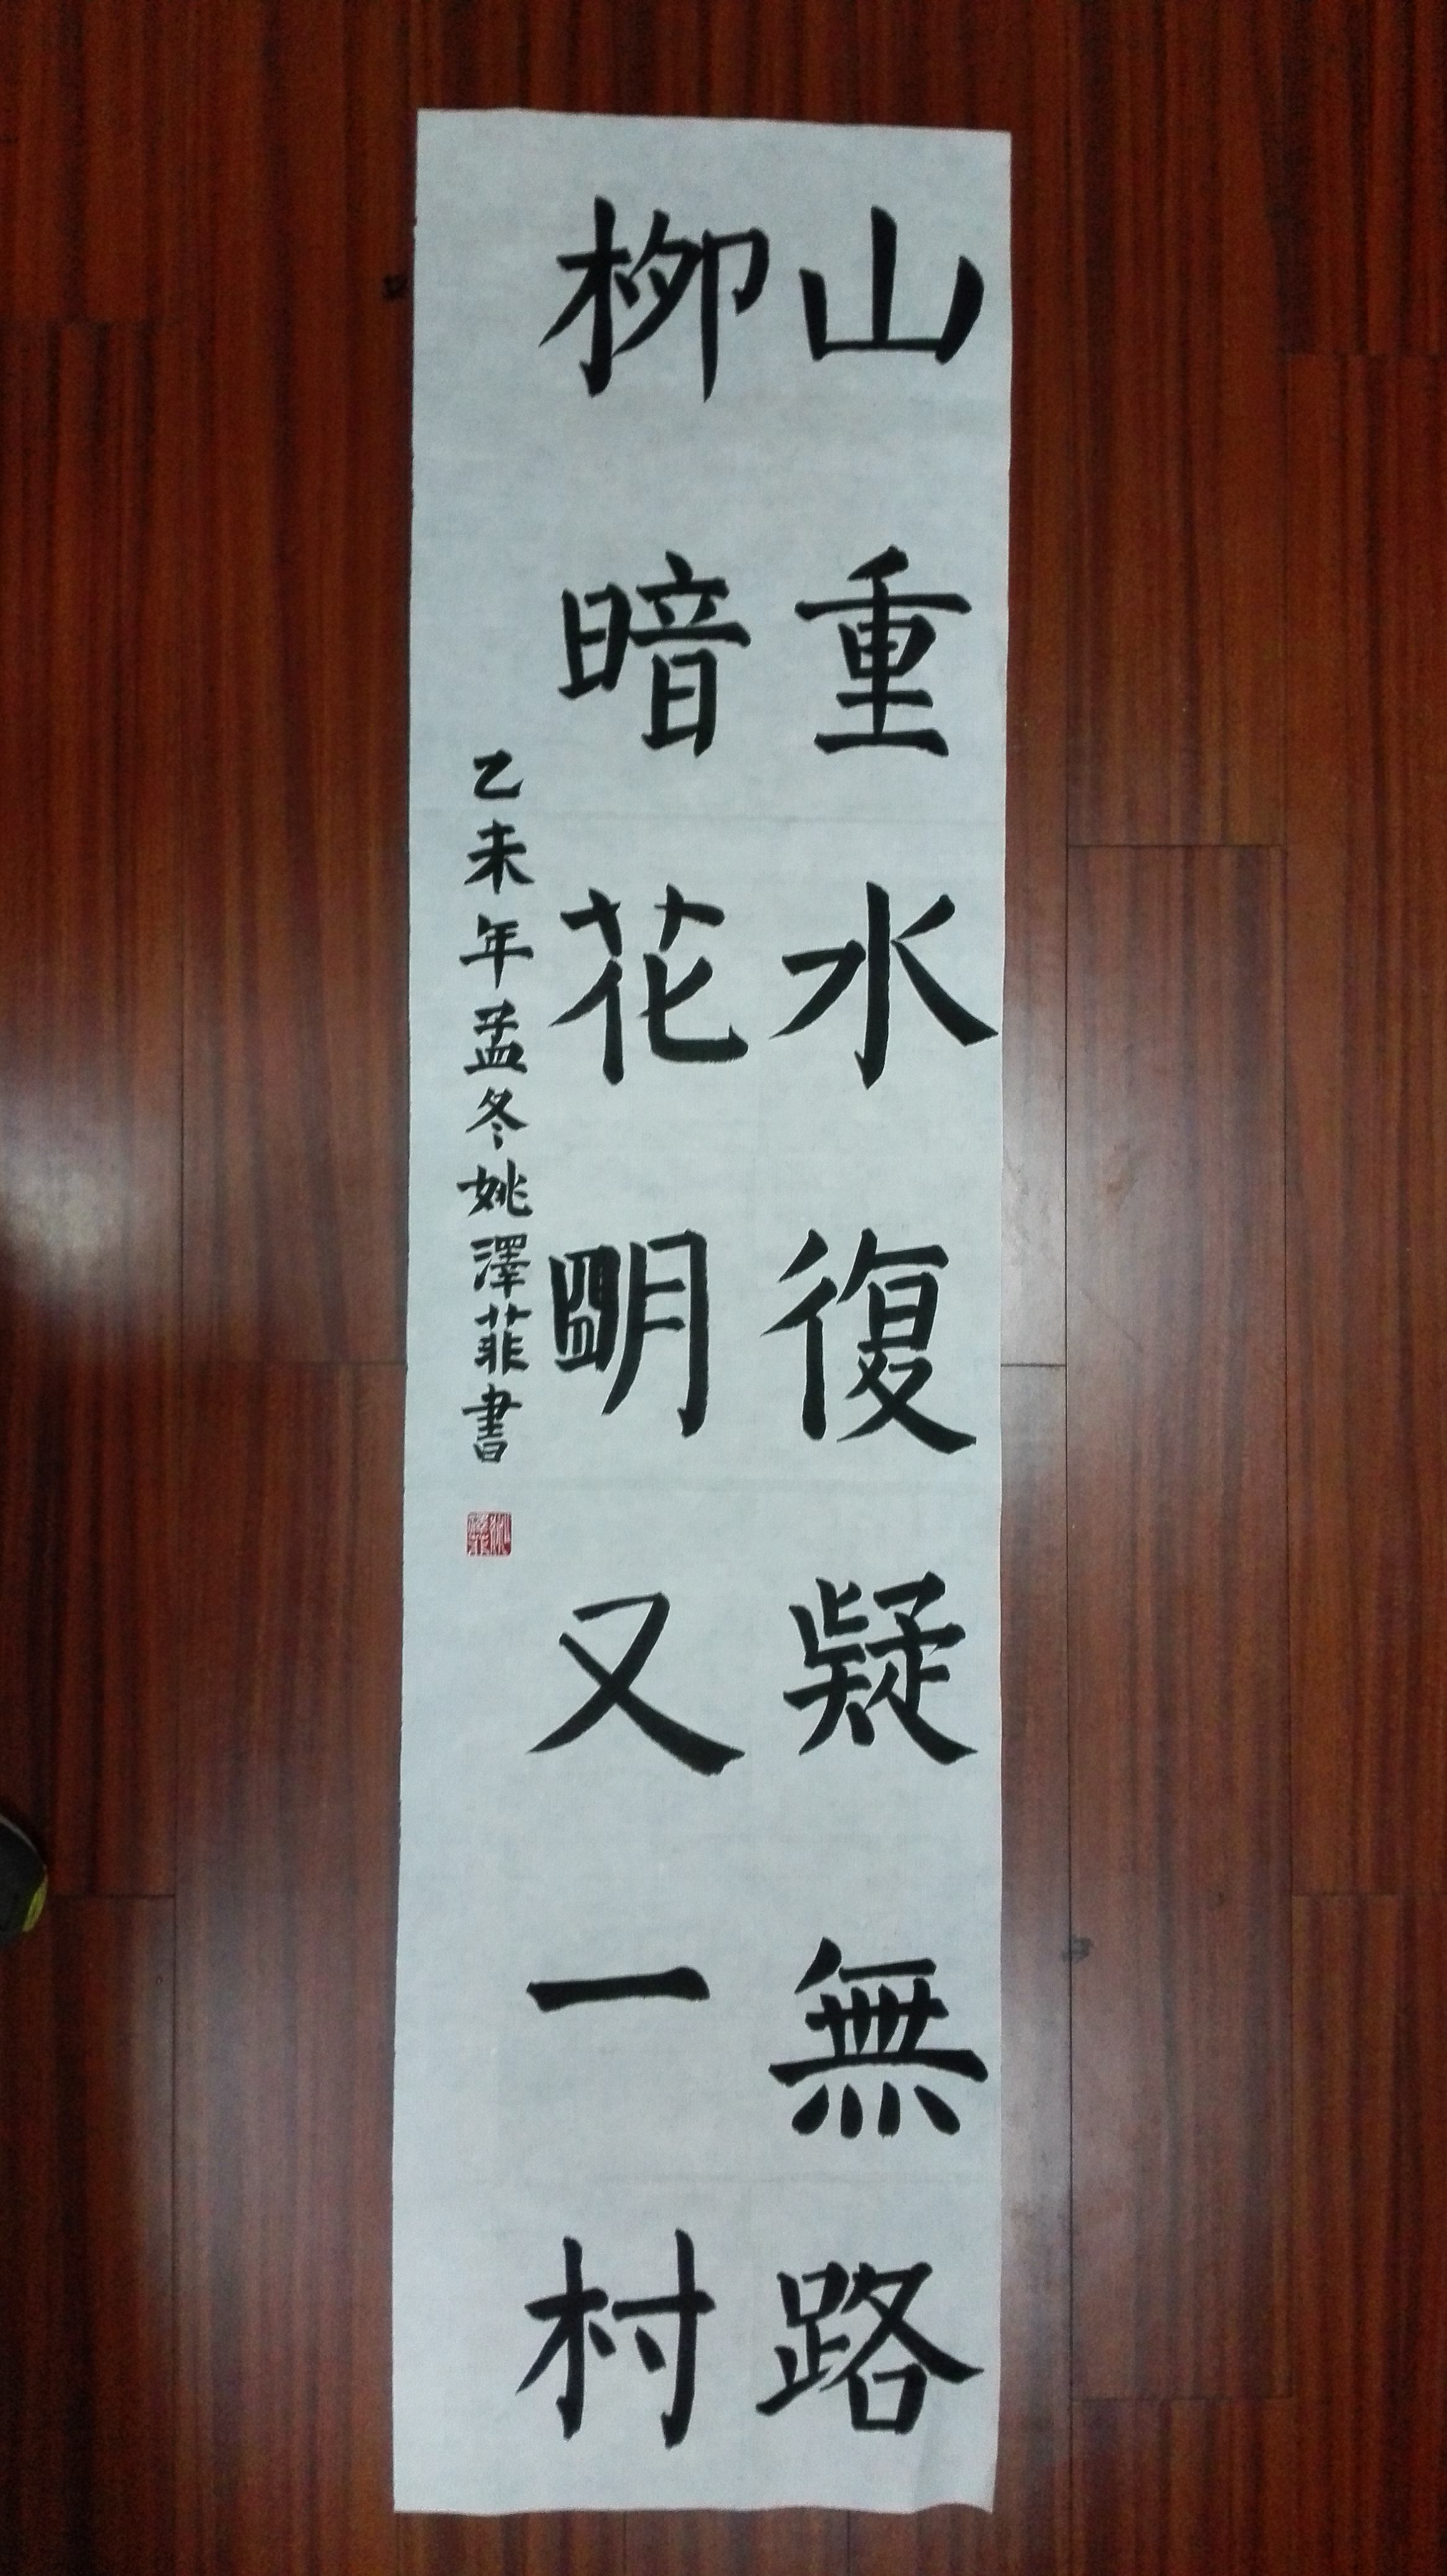 山重水復疑無路
柳暗花明又一村
乙未年孟冬姚澤菲書